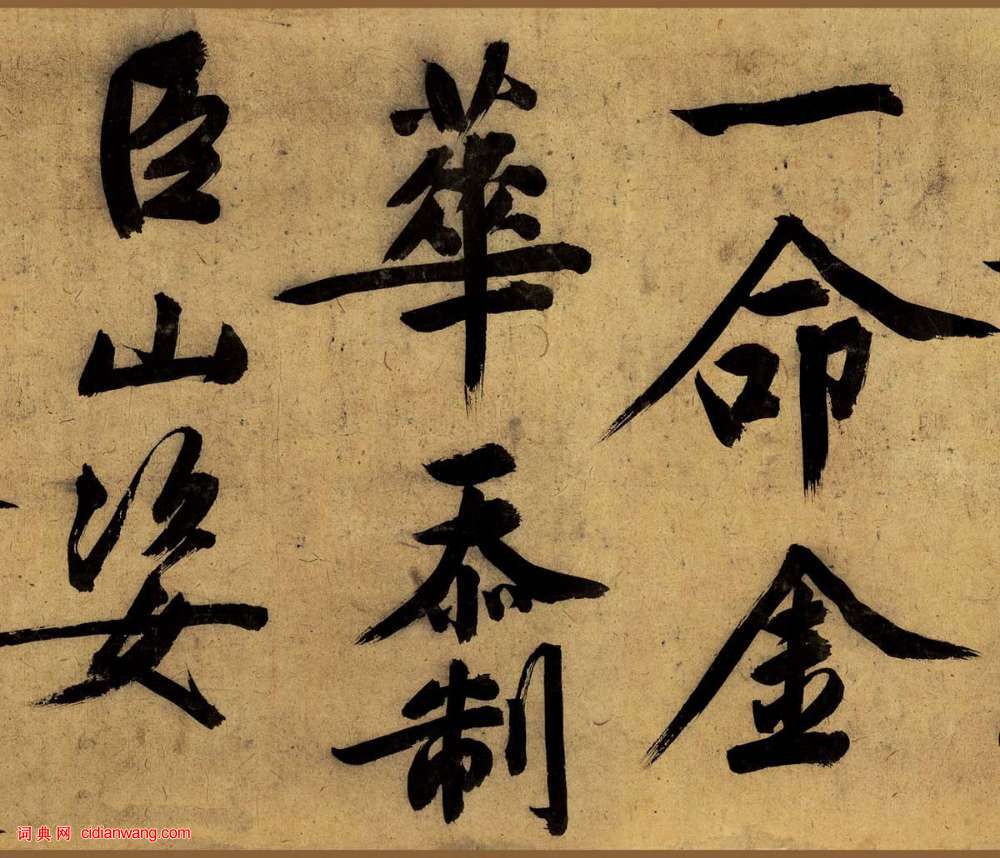 一命金
華忝制
臣山姿
词典网 cidianwang.com